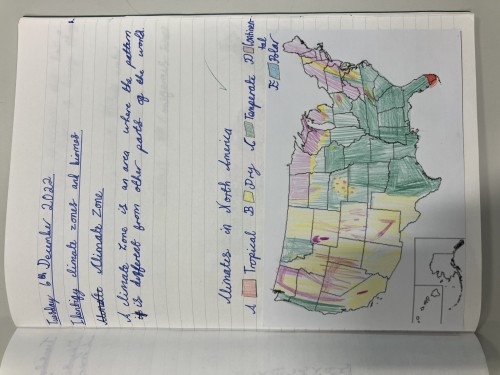 Tuesday 6th December 2022
Identify climate zones and biomes
Climate Zone
A climate zone is an area where the pattern
is different from other parts of the world
Climates in North America
A Tropical B Dry C Temperate D Continen-
tal
E Polar